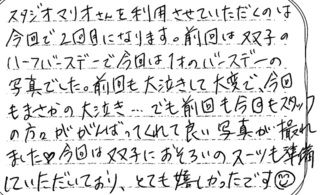 スタジオマリオさんを利用させていただくのは
今回で2回目になります。前回は双子の
ハーフバースデーで今回は1才のバースデーの
写真でした。前回も大泣きして大変で、今回
もまさかの大泣き…でも前回も今回もスタッフ
の方々ががんばってくれて良い写真が撮れ
ました♡今回は双子におそろいのスーツも準備
していただいており、とても嬉しかったです